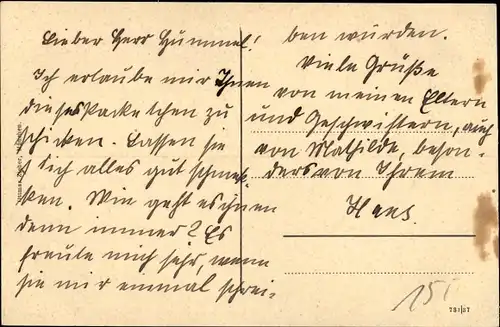 Lieber Herr Hummel!
Ich erlaube mir Ihnen
dieses Packetchen zu
schicken. Lassen sie
sich alles gut schmek-
ken. Wie geht es ihnen
denn immer? Es
freute mich sehr, wenn
sie mir einmal schrei-
ben würden.
Viele Grüße
von meinen Eltern
und Geschwistern, auch
von Mathilde, beson-
ders von Ihrem
Hans.
15
781|37